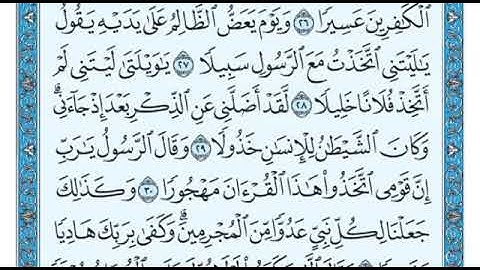 ٱلْكَٰفِرِينَ عَسِيرًا ٢٦ وَيَوْمَ يَعَضُّ ٱلظَّالِمُ عَلَىٰ يَدَيْهِ يَقُولُ
يَٰلَيْتَنِي ٱتَّخَذْتُ مَعَ ٱلرَّسُولِ سَبِيلًا ٢٧ يَٰوَيْلَتَىٰ لَيْتَنِي لَمْ
أَتَّخِذْ فُلَانًا خَلِيلًا ٢٨ لَّقَدْ أَضَلَّنِي عَنِ ٱلذِّكْرِ بَعْدَ إِذْ جَآءَنِيۗ
وَكَانَ ٱلشَّيْطَٰنُ لِلْإِنسَٰنِ خَذُولًا ٢٩ وَقَالَ ٱلرَّسُولُ يَٰرَبِّ
إِنَّ قَوْمِي ٱتَّخَذُوا۟ هَٰذَا ٱلْقُرْءَانَ مَهْجُورًا ٣٠ وَكَذَٰلِكَ
جَعَلْنَا لِكُلِّ نَبِيٍّ عَدُوًّا مِّنَ ٱلْمُجْرِمِينَۗ وَكَفَىٰ بِرَبِّكَ هَادِيًا